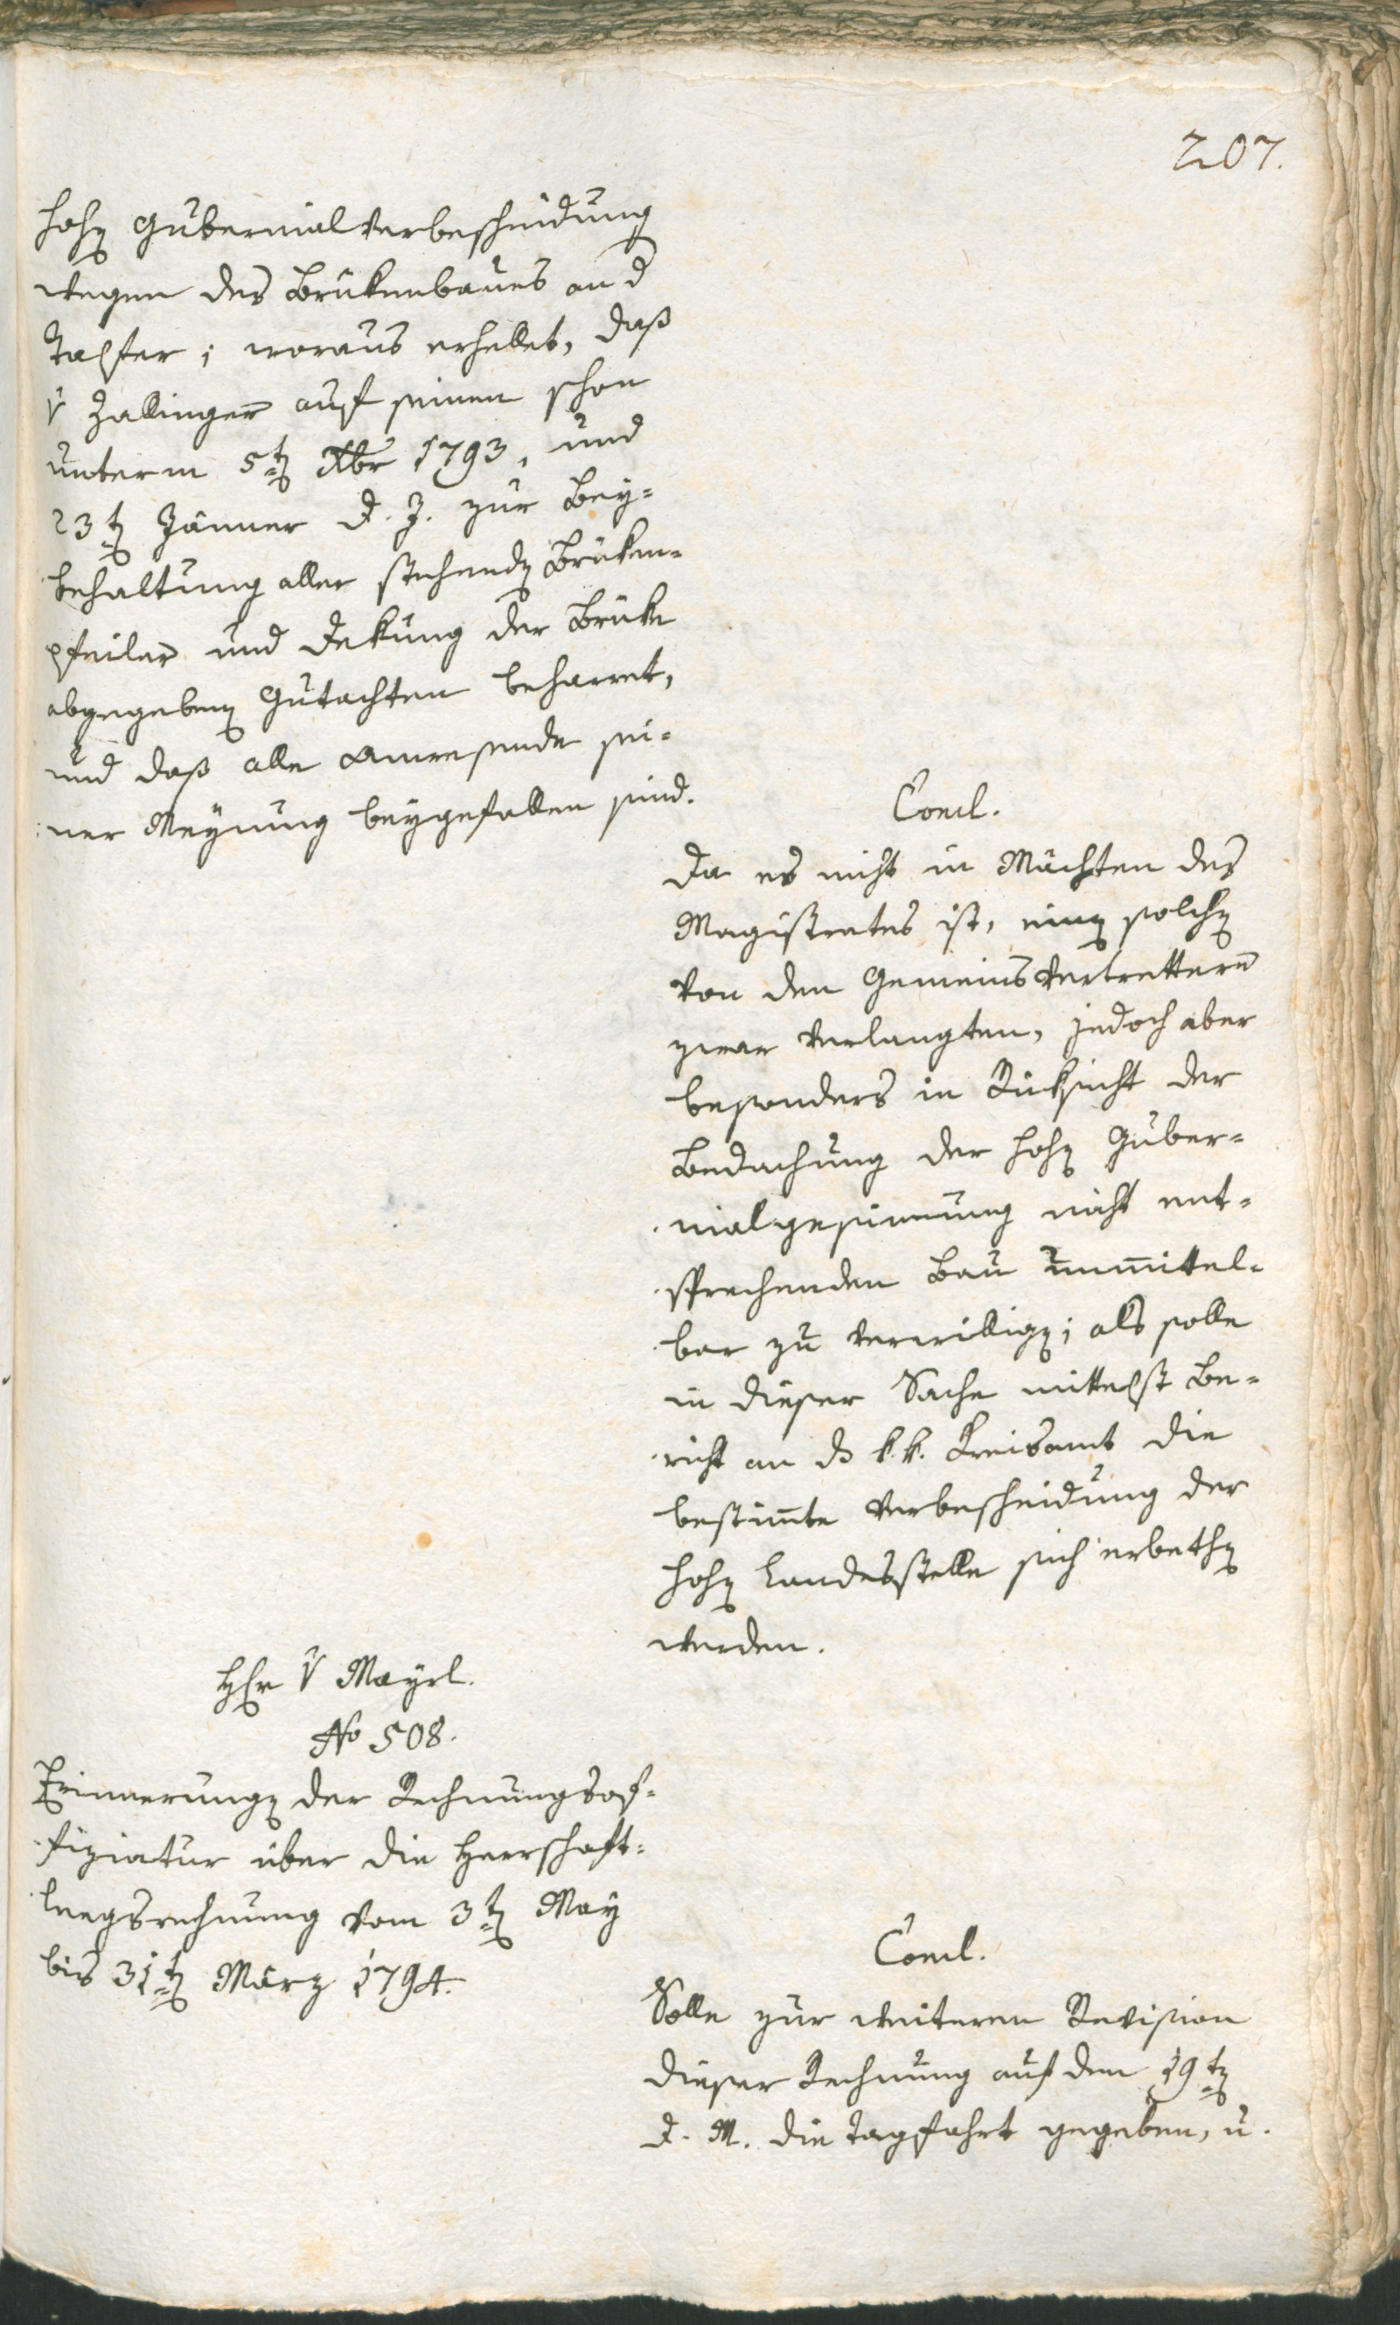 207.
hohen Gubernialverbescheidung
wegen des Brükenbaues an d
Talfer; woraus erhellet, daß
v Zallinger auf seinem schon
unterm 5ten Xbr 1793, und
23ten Jänner d. J. zur Bey-
behaltung aller stehenden Brüken-
pfeiler und Dekung der Brüke
abgegebenen Gutachten beharret,
und daß alle Anwesende sei-
ner Meynung beygefallen sind.
Concl.
Da es nicht in Mächten des
Magistrates ist, einen solchen
von den Gemeinsvertrettern
zwar verlangten, jedoch aber
besonders in Rüksicht der
Bedachung der hohen Guber-
nialgesinnung nicht ent-
sprechenden Bau unmittel-
bar zu verwilligen; als solle
in dieser Sache mittelst Be-
richt an ds k. k. Kreisamt die
bestimmte Verbescheidung der
hohen Landesstelle sich erbethen
werden.
Hr v Mayrl.
No 508.
Erinnerungen der Rechnungsof-
fiziatur über die Herrschaft-
luegsrechnung vom 3ten May
bis 31ten März 1794.
Concl.
Solle zur weiteren Revision
dieser Rechnung auf den 19ten
d. M. die Tagfahrt gegeben, u.